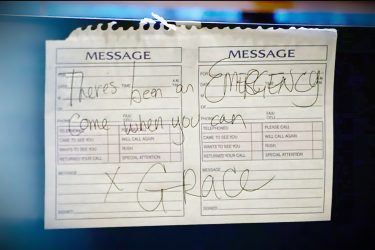 MESSAGE MESSAGE
There's been an EMERGENCY
Come when you can
x Grace
FOR
DATE TIME
A.M.
P.M.
OF
PHONE
FAX
CELL
TELEPHONED PLEASE CALL
CAME TO SEE YOU WILL CALL AGAIN
WANTS TO SEE YOU RUSH
RETURNED YOUR CALL SPECIAL ATTENTION
MESSAGE
SIGNED
TELEPHONED PLEASE CALL
CAME TO SEE YOU WILL CALL AGAIN
WANTS TO SEE YOU RUSH
RETURNED YOUR CALL SPECIAL ATTENTION
MESSAGE
SIGNED